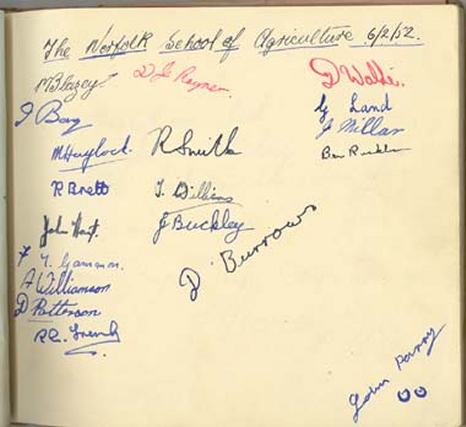 The Norfolk School of Agriculture 6/2/52.
M Blazey.
D J Rayner.
D Waldi.
J Bay
G Land
J Millar
M Haylock.
R Smith
Ben
R Brett
T. Williams
John Hart.
J Buckley
D Burrows
Y. Gammon.
A Williamson
D Patterson
R.R. French
John Parry